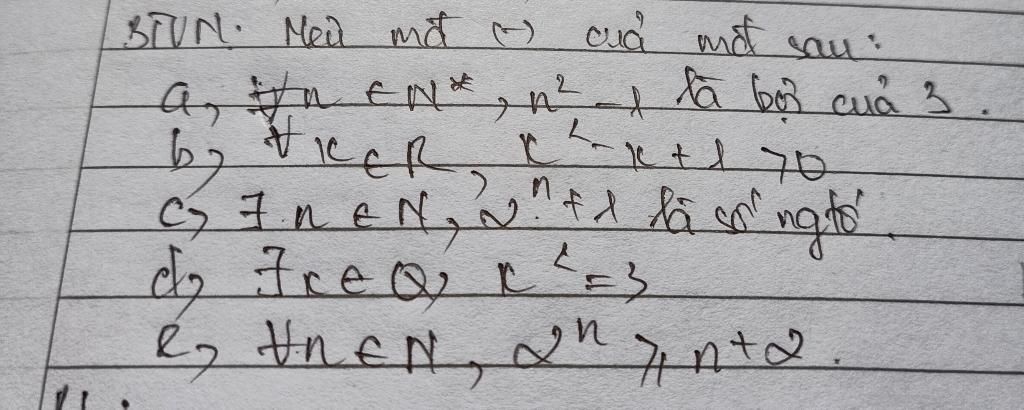 BTVN: Nêu mđ (-) cuả mđ sau:
a, ∀n ∈ N*, n² - 1 là bội cuả 3.
b, ∀x ∈ R, x² - x + 1 > 0
c, ∃n ∈ N, 2ⁿ + 1 là số ngtố.
d, ∃x ∈ Q, x² = 3
e, ∀n ∈ N, 2ⁿ ⩾ n + 2.